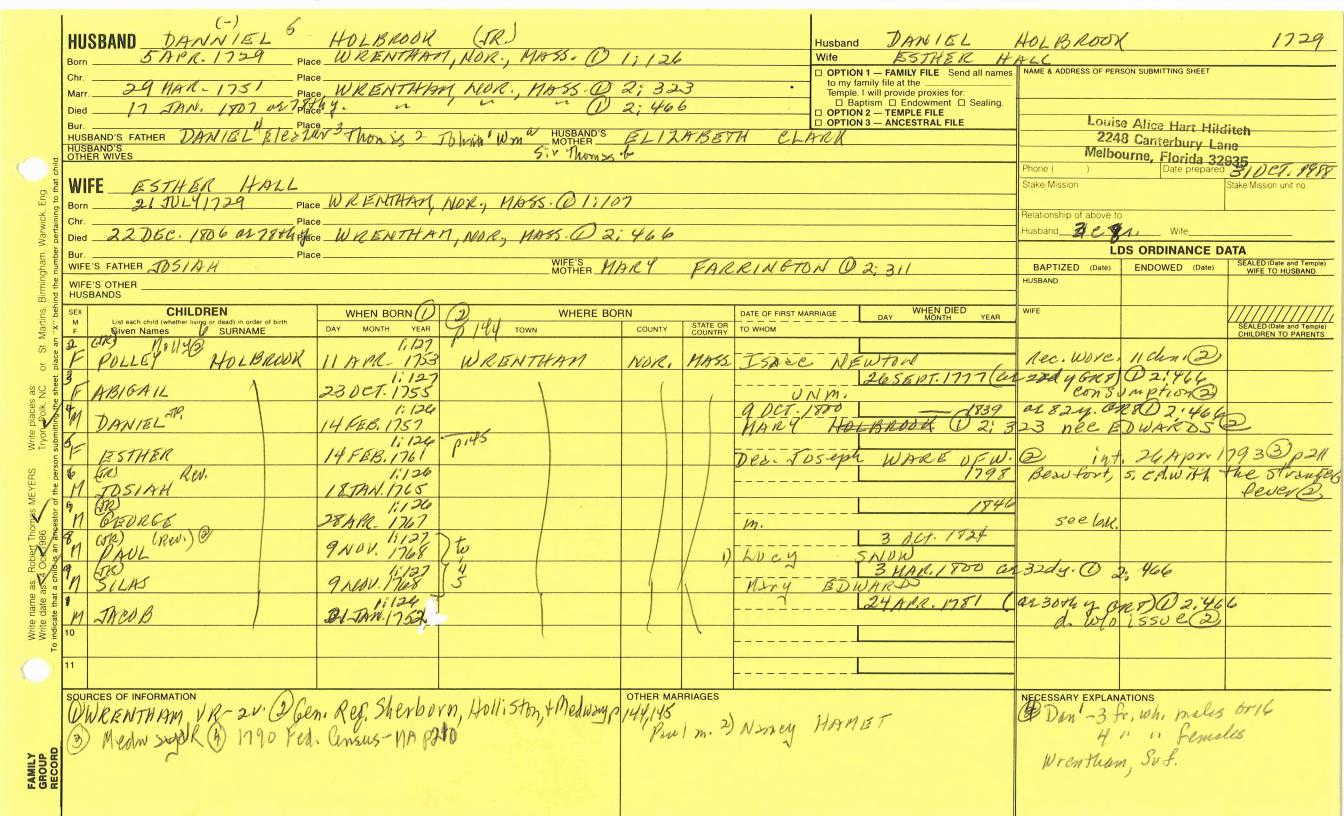 (-)
HUSBAND DANNIEL 5 HOLBROOK (JR.)
Born 5 APR. 1729 Place WRENTHAM, NOR., MASS. ① 1; 126
Chr. Place
Marr. 29 MAR- 1751 Place WRENTHAM, NOR., MASS. ① 2; 323
Died 17 JAN. 1807 or 78thy. Place " " " ① 2; 466
Bur. Place
HUSBAND'S FATHER DANIEL 4 Eleazar 3 Thomas 2 John 1 Wm a HUSBAND'S MOTHER ELIZABETH CLARK
HUSBAND'S OTHER WIVES Sir Thomas b
Husband DANIEL HOLBROOK 1729
Wife ESTHER HALL
☐ OPTION 1 — FAMILY FILE Send all names
to my family file at the
Temple. I will provide proxies for:
☐ Baptism ☐ Endowment ☐ Sealing.
☐ OPTION 2 — TEMPLE FILE
☐ OPTION 3 — ANCESTRAL FILE
NAME & ADDRESS OF PERSON SUBMITTING SHEET
Louise Alice Hart Hilditch
2248 Canterbury Lane
Melbourne, Florida 32935
Phone ( ) Date prepared 31 OCT. 1988
Stake Mission Stake Mission unit no.
Relationship of above to
Husband Wife
WIFE ESTHER HALL
Born 21 JULY 1729 Place WRENTHAM, NOR., MASS. ① 1:107
Chr. Place
Died 22 DEC. 1806 or 78thy Place WRENTHAM, NOR., MASS. ① 2; 466
Bur. Place
WIFE'S FATHER JOSIAH WIFE'S MOTHER MARY FARRINGTON ① 2; 311
WIFE'S OTHER HUSBANDS
LDS ORDINANCE DATA
BAPTIZED (Date) ENDOWED (Date) SEALED (Date and Temple) WIFE TO HUSBAND
HUSBAND
WIFE
SEALED (Date and Temple) CHILDREN TO PARENTS
SEX M F CHILDREN WHEN BORN ① ② WHERE BORN DATE OF FIRST MARRIAGE WHEN DIED
List each child (whether living or dead) in order of birth
Given Names 6 SURNAME DAY MONTH YEAR p 144 TOWN COUNTY STATE OR COUNTRY TO WHOM DAY MONTH YEAR
2 (JR) Molly ② 1:127
F POLLEY HOLBROOK 11 APR. 1753 WRENTHAM NOR. MASS. Isaac NEWTON Rec. Worc. 11 chn. ②
3 1:127 26 SEPT. 1777 (or 22d y GR8) ① 2;466
F ABIGAIL 23 OCT. 1755 UNM. consumption ②
4 1:126 9 OCT. 1800 1839 or 82 y. GR8 ① 2:466
M DANIEL JR 14 FEB. 1757 MARY HOLBROOK ① 2; 323 nee EDWARDS ②
5 1:126 p145
F ESTHER 14 FEB. 1761 Dea. Joseph WARE OF W. ② int. 26 Apr. 1793 ③ p211
6 (JR) Rev. 1:126 1798 Beaufort, S. C. d. with the stranger
M JOSIAH 18 JAN. 1765 fever ②
(JR) 1:126 1846
M GEORGE 28 APR. 1767 m. see bk.
8 (JR) (Rev.) ② 1:127 3 OCT. 1824
M PAUL 9 NOV. 1768 tw 1) Lucy SNOW
9 (JR) 1:127 3 MAR. 1800 or 32dy. ① 2; 466
M SILAS 9 NOV. 1768 Mary EDWARDS
1 1:126 24 APR. 1781 (or 30th y GR8) ① 2:466
M JACOB 21 JAN. 1752 d. w/o issue ②
10
11
SOURCES OF INFORMATION
① WRENTHAM VR- 2v. ② Gen. Reg. Sherborn, Holliston, & Medway p 144,145
③ Medway VR ④ 1790 Fed. Census-MA p210
OTHER MARRIAGES
Paul m. 2) Nancy HAMET
NECESSARY EXPLANATIONS
④ Danl - 3 fr. wh. males or 16
4 " " females
Wrentham, Suf.
FAMILY GROUP RECORD
Write name as: Robert Thomas MEYERS Write places as: Tryon, Polk, NC or St. Martins, Birmingham, Warwick, Eng
Write date as: 4 Oct 1986
To indicate that a child is an ancestor of the person submitting the sheet, place an "X" behind the number pertaining to that child.